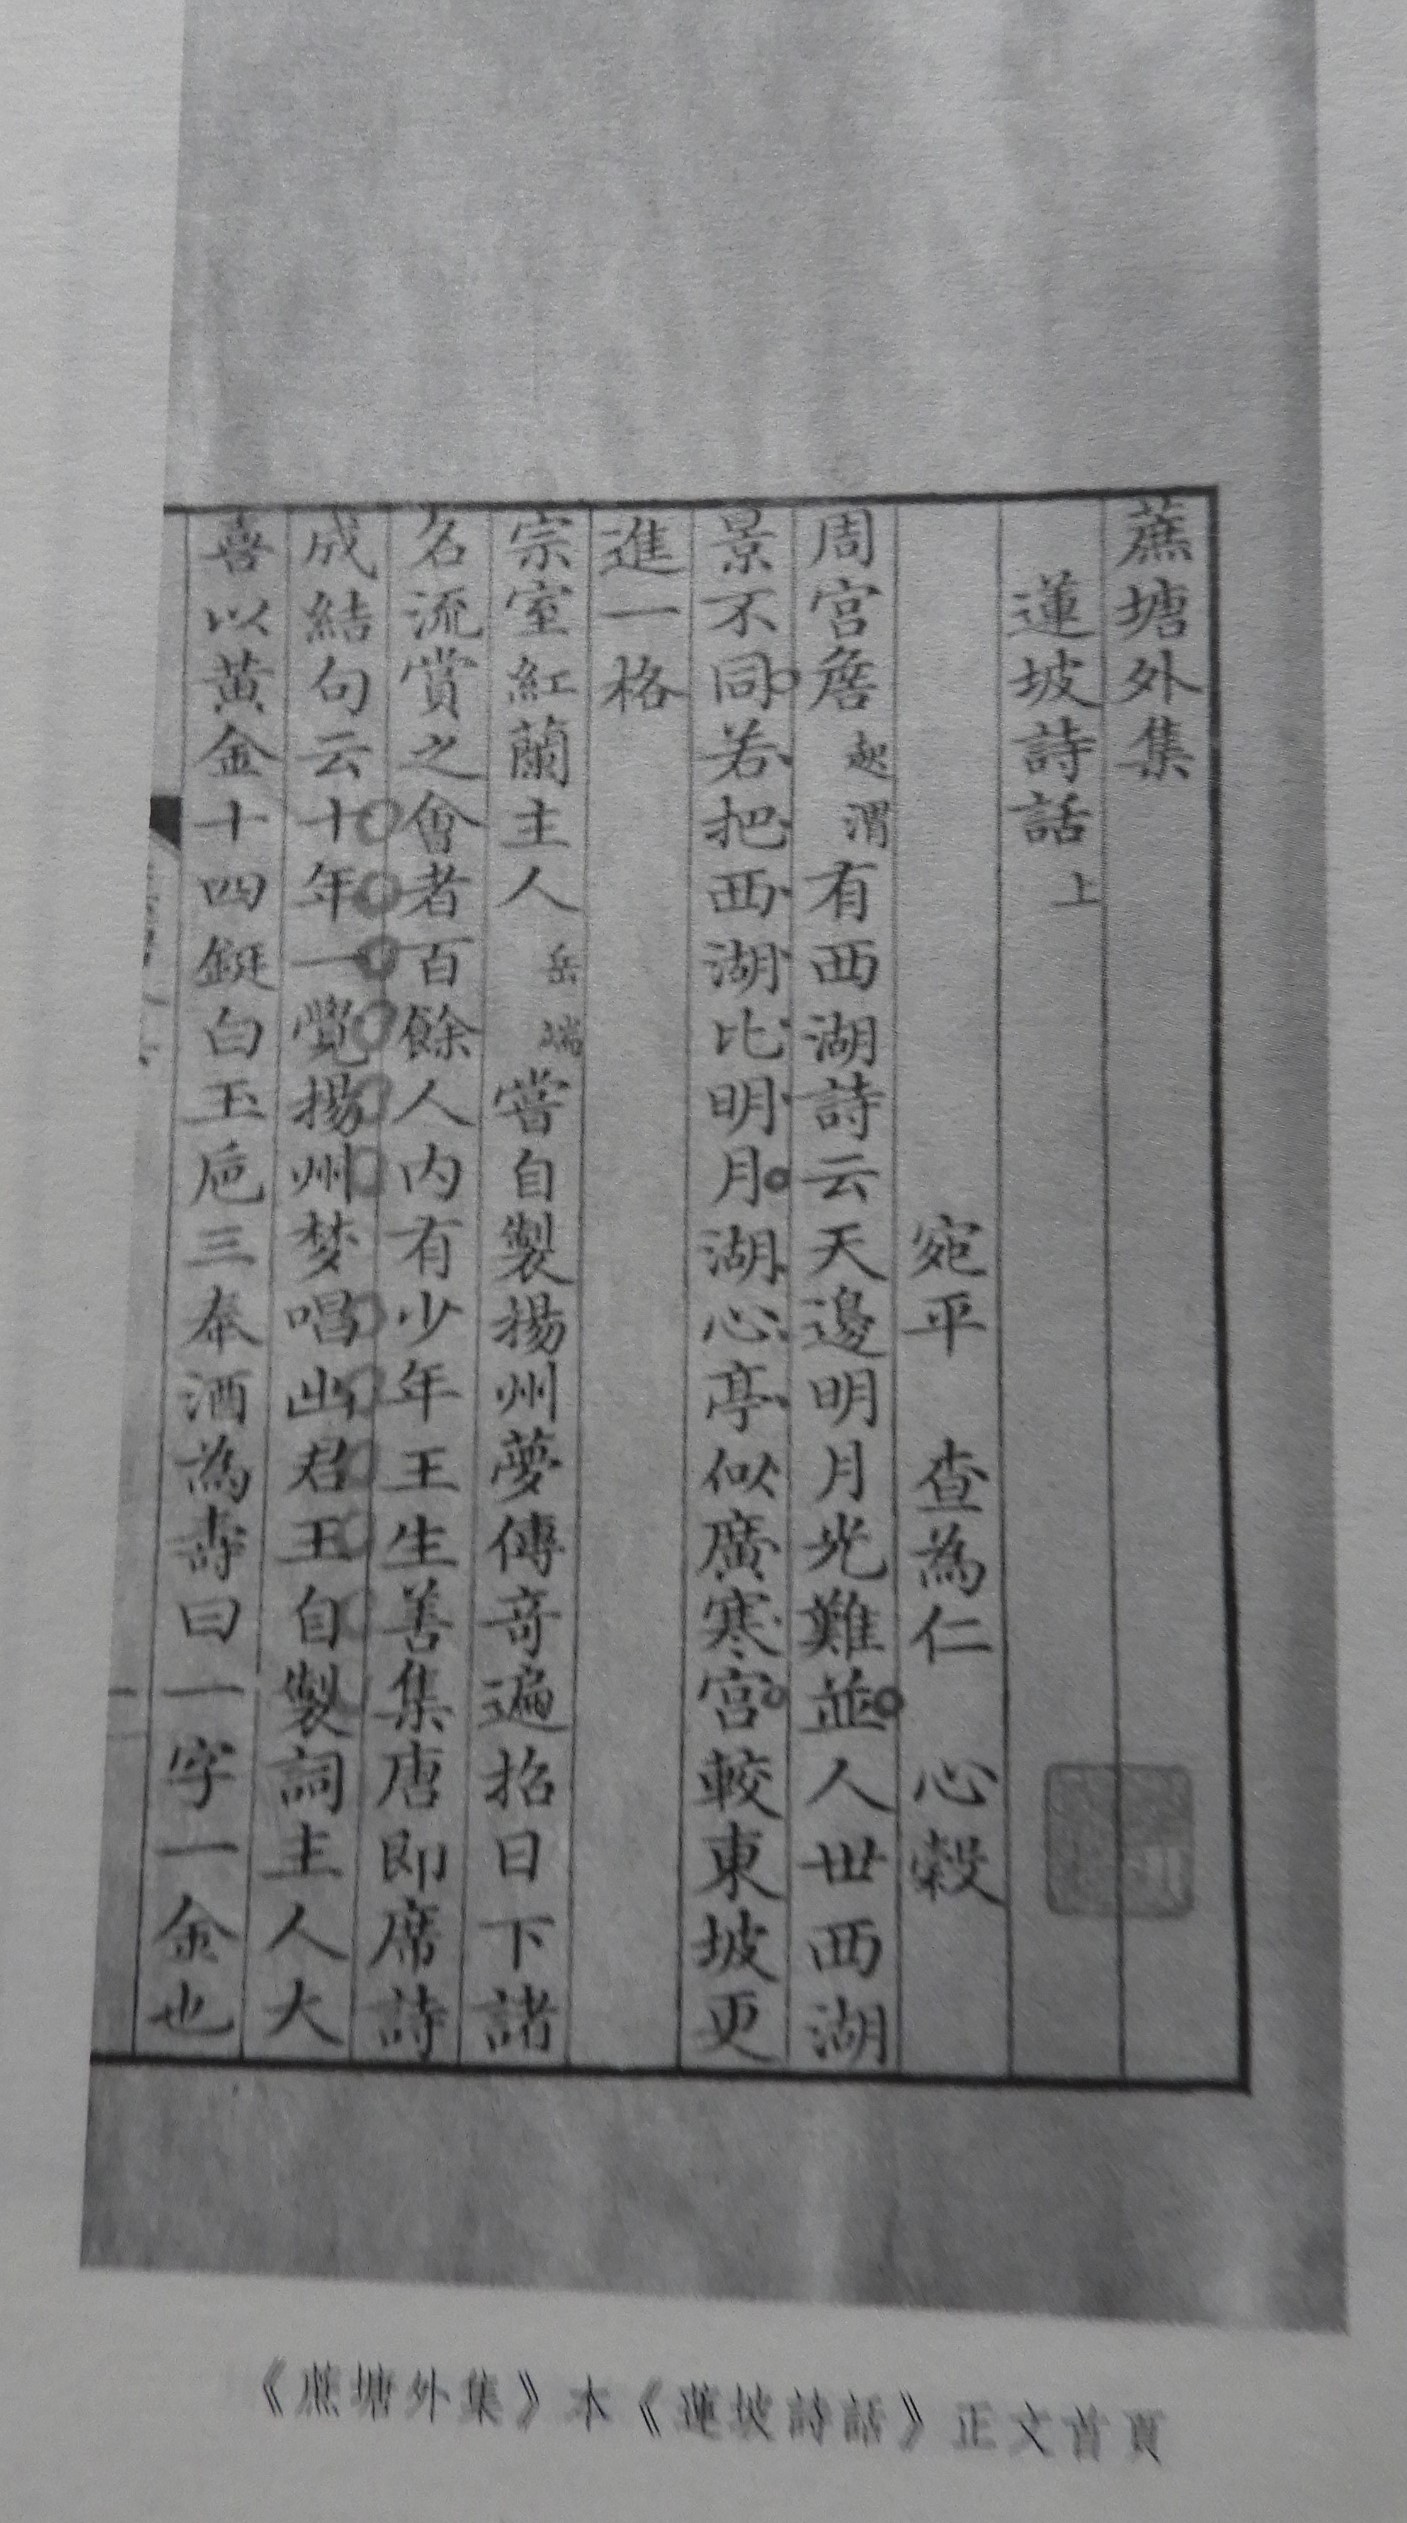 蔗塘外集
蓮坡詩話 上
宛平 查為仁 心穀
周宮詹 起渭 有西湖詩云天邊明月光難並人世西湖
景不同若把西湖比明月湖心亭似廣寒宮較東坡更
進一格
宗室紅蘭主人 岳端 嘗自製揚州夢傳奇遍招日下諸
名流賞之會者百餘人內有少年王生善集唐即席詩
成結句云十年一覺揚州梦唱出君王自製詞主人大
喜以黄金十四鋌白玉巵三奉酒為壽曰一字一金也
《蔗塘外集》本《蓮坡詩話》正文首頁